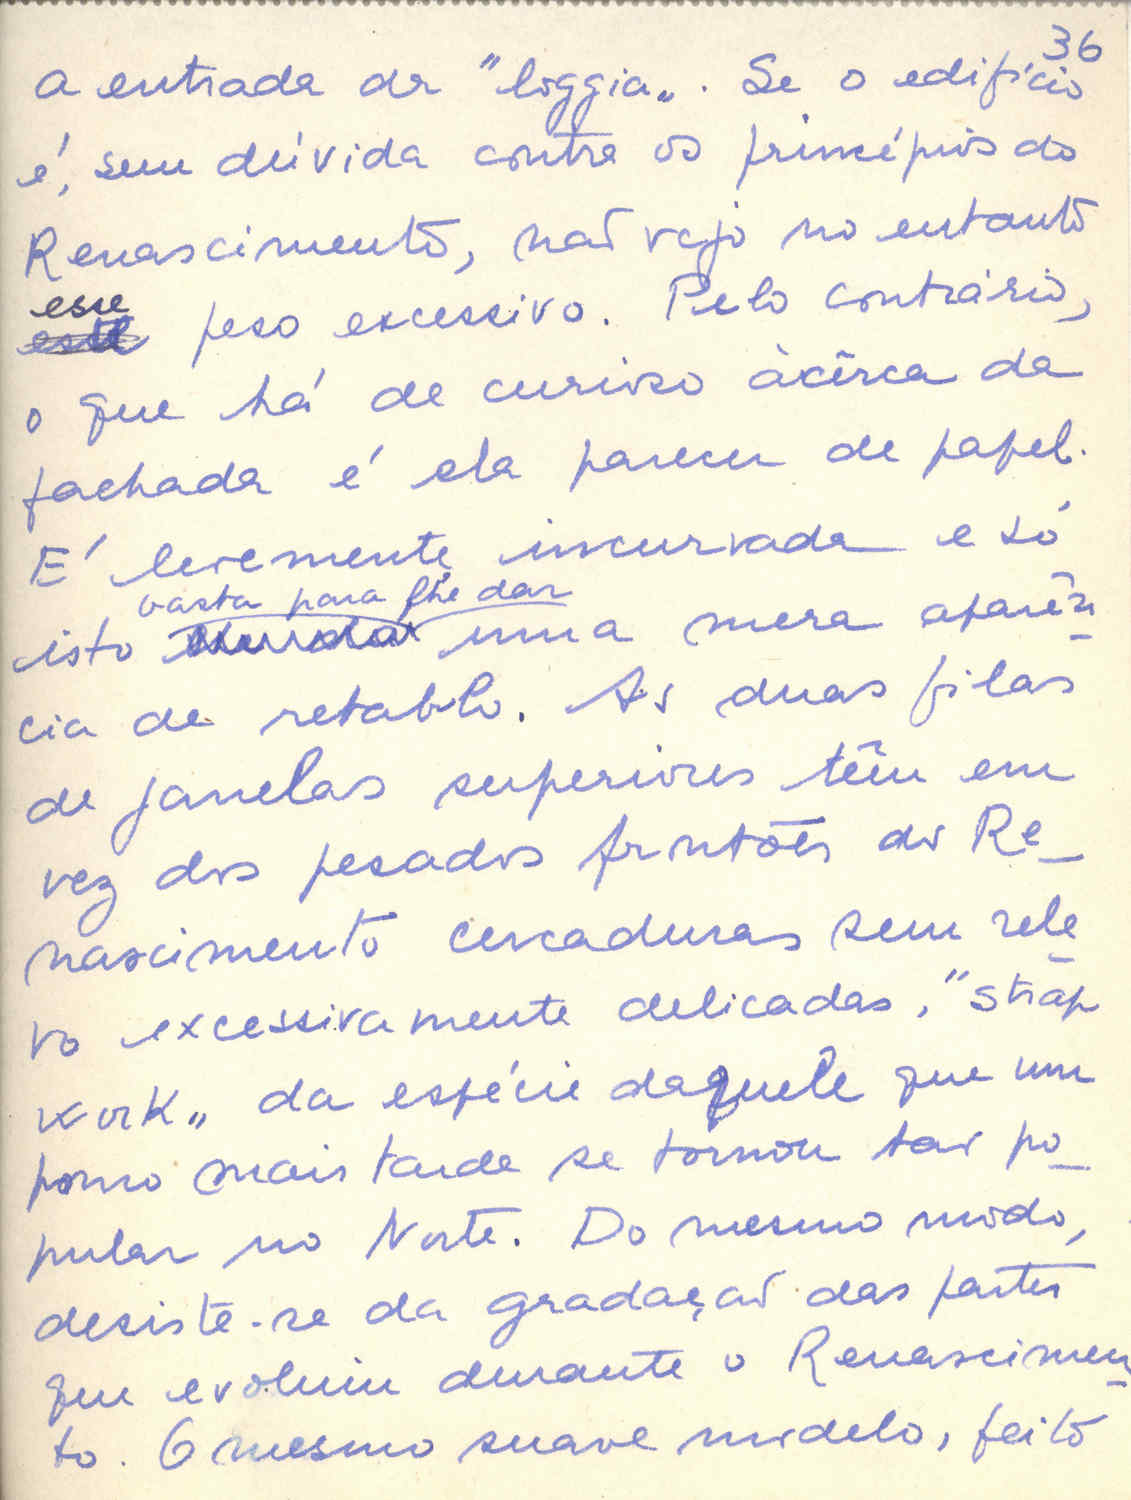 36
a entrada da "loggia„. Se o edifício
é, sem dúvida contra os princípios do
Renascimento, não vejo no entanto
esse
peso excessivo. Pelo contrário,
o que há de curioso àcêrca da
fachada é ela parecer de papel.
É levemente incurvada e só
basta para lhe dar
isto uma mera aparên
cia de retablo. As duas filas
de janelas superiores têm em
vez dos pesados frontões do Re_
nascimento cercaduras sem rele
vo excessivamente delicadas, "strap
work„ da espécie daquele que um
pouco mais tarde se tornou tão po_
pular no Norte. Do mesmo modo,
desiste-se da gradação das partes
que evoluiu durante o Renascimen
to. O mesmo suave modelo, feito